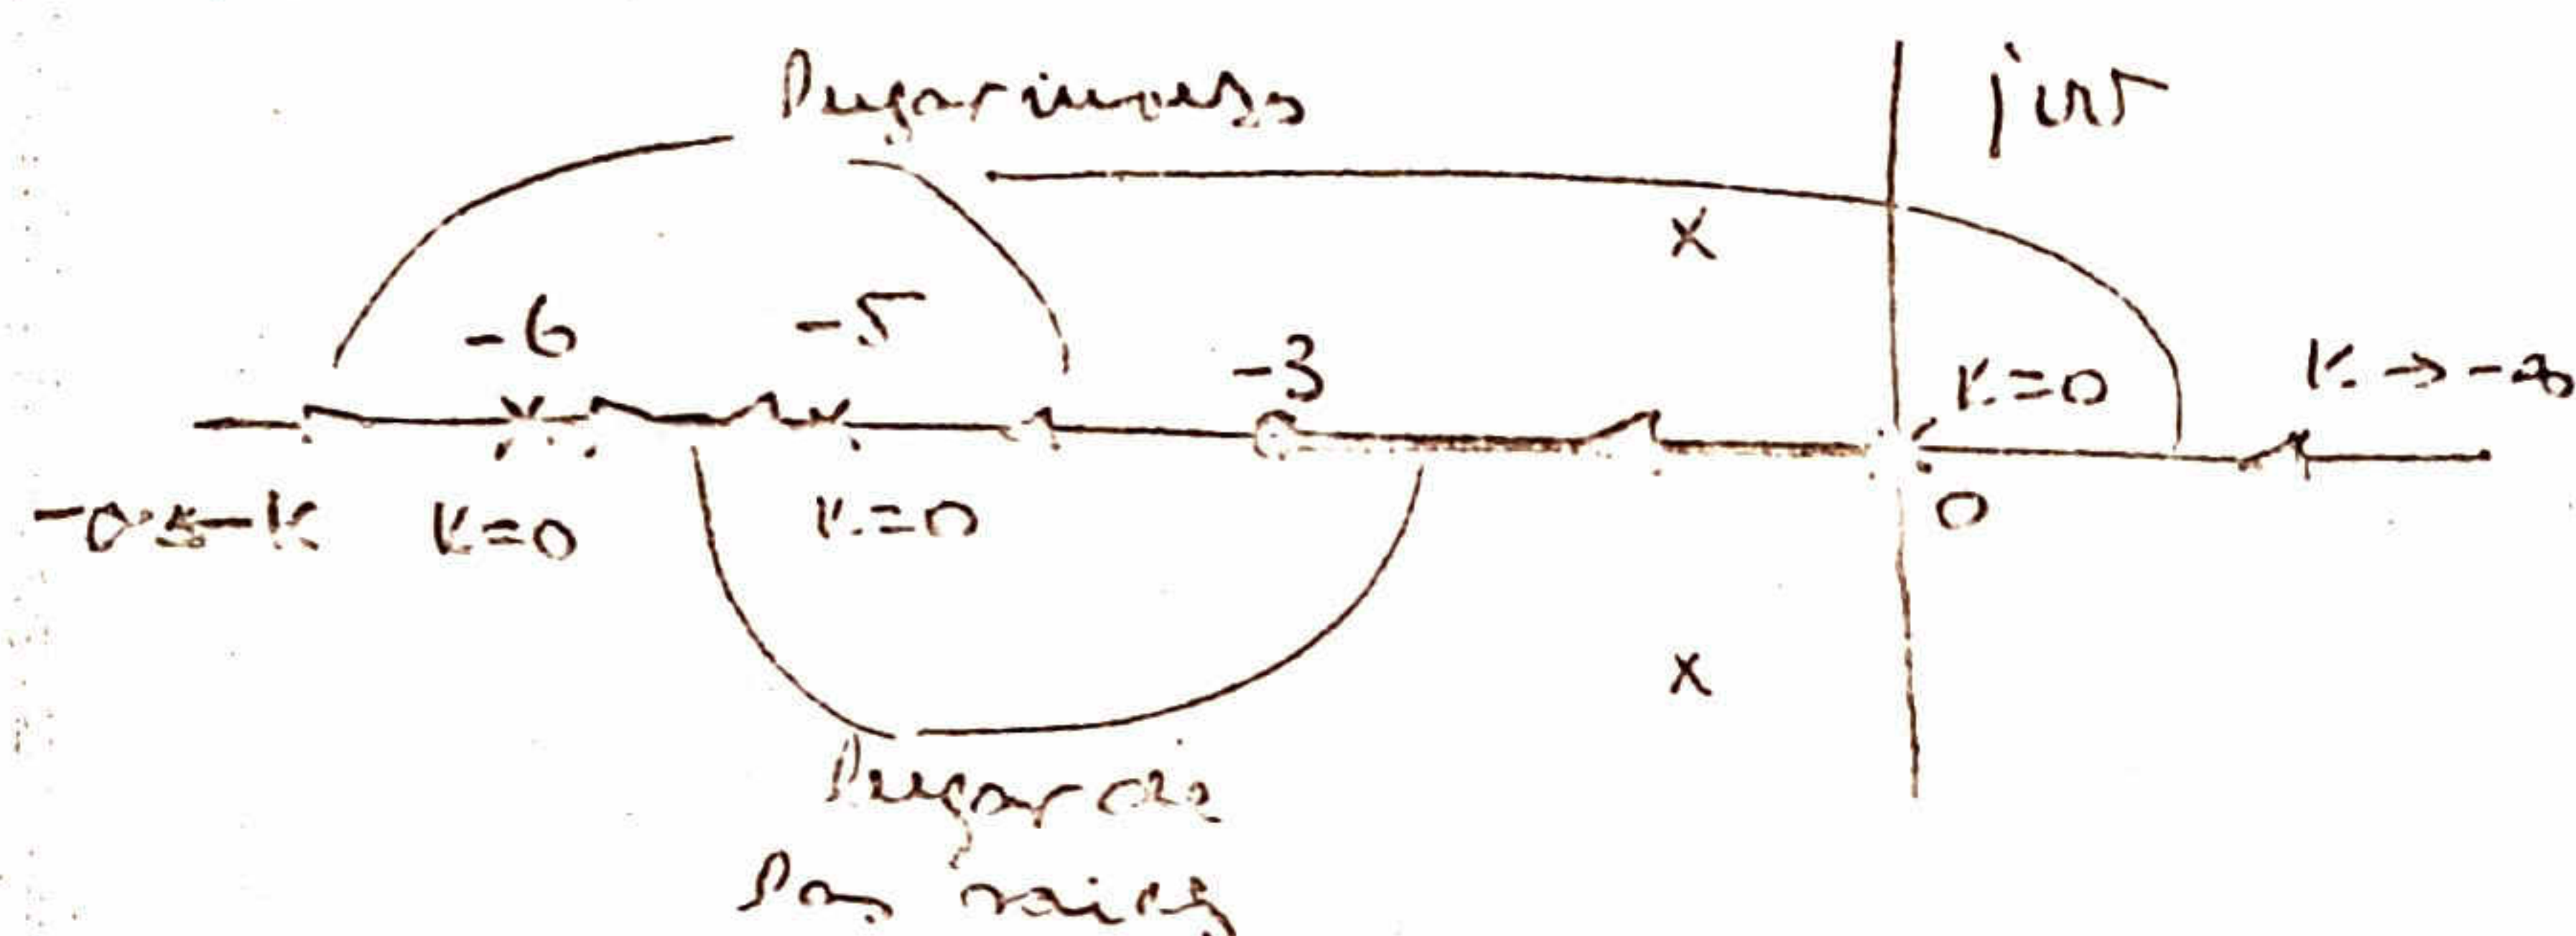 Lugar inverso
jω
-6
-5
-3
K=0
K → -∞
K=0
K=0
0
Lugar de
las raíces